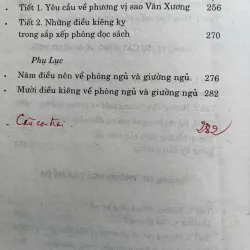 Tiết 1. Yêu cầu về phương vị sao Văn Xương 256
Tiết 2. Những điều kiêng kỵ
trong sắp xếp phòng đọc sách 270
Phụ Lục
Năm điều nên về phòng ngủ và giường ngủ. 276
Mười điều kiêng về phòng ngủ và giường ngủ 282
289